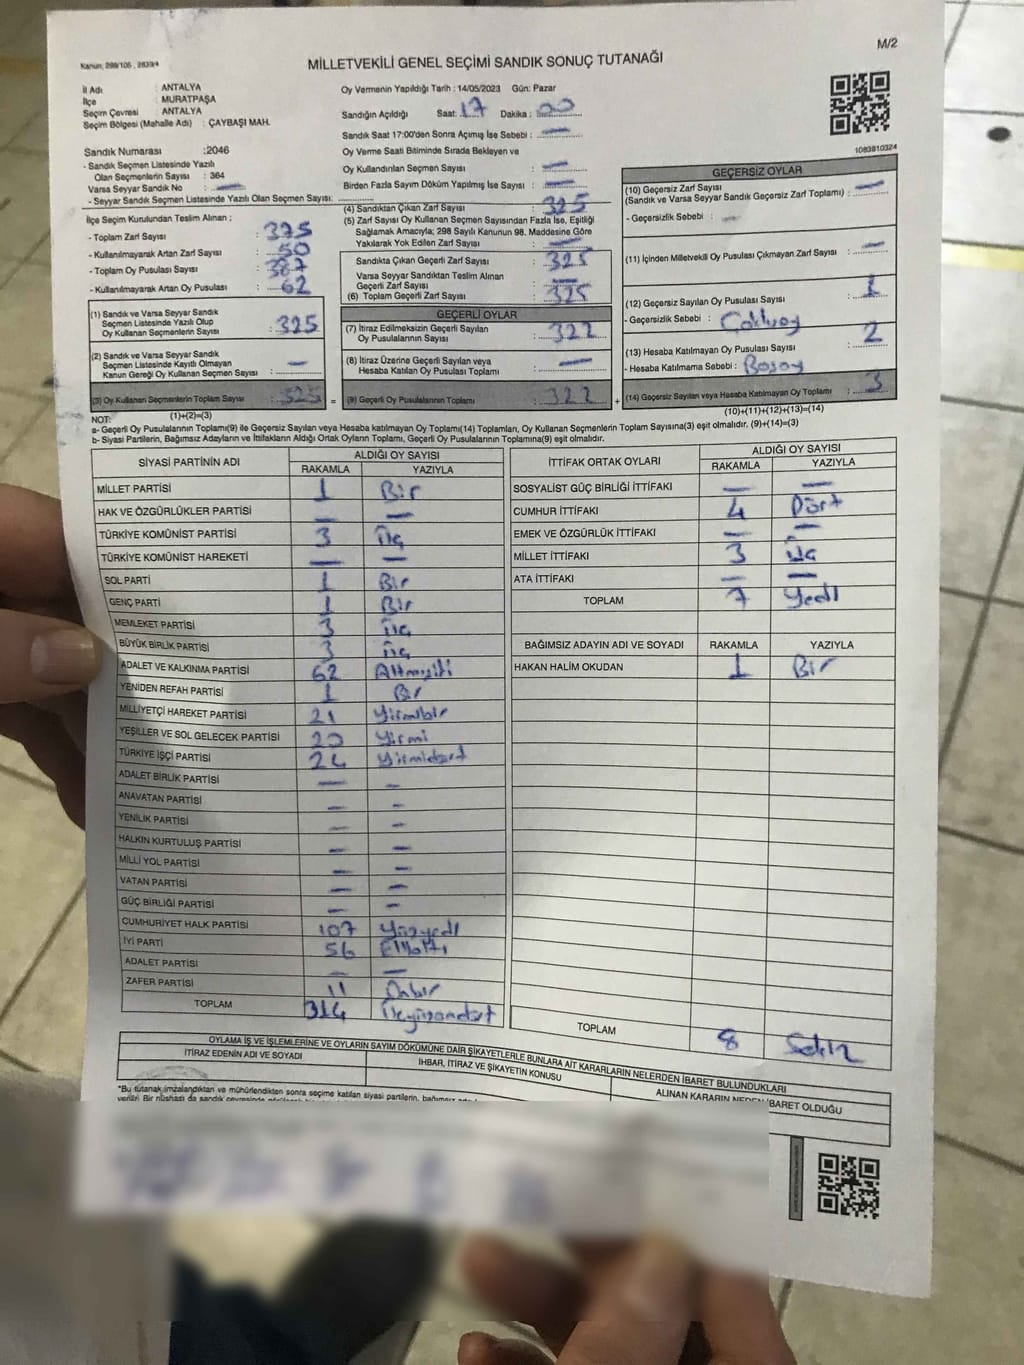 M/2
Kanun, 298/105 , 2839/4
MİLLETVEKİLİ GENEL SEÇİMİ SANDIK SONUÇ TUTANAĞI
İl Adı : ANTALYA
İlçe : MURATPAŞA
Seçim Çevresi : ANTALYA
Seçim Bölgesi (Mahalle Adı) : ÇAYBAŞI MAH.
Oy Vermenin Yapıldığı Tarih : 14/05/2023 Gün: Pazar
Sandığın Açıldığı Saat: 17 Dakika : 00
Sandık Saat 17:00'den Sonra Açımış İse Sebebi : —
Oy Verme Saati Bitiminde Sırada Bekleyen ve
Oy Kullandırılan Seçmen Sayısı : —
Birden Fazla Sayım Döküm Yapılmış İse Sayısı : —
1083810324
Sandık Numarası :2046
- Sandık Seçmen Listesinde Yazılı
Olan Seçmenlerin Sayısı : 364
Varsa Seyyar Sandık No : —
- Seyyar Sandık Seçmen Listesinde Yazılı Olan Seçmen Sayısı:
İlçe Seçim Kurulundan Teslim Alınan ;
- Toplam Zarf Sayısı : 375
- Kullanılmayarak Artan Zarf Sayısı : 50
- Toplam Oy Pusulası Sayısı : 387
- Kullanılmayarak Artan Oy Pusulası : 62
(1) Sandık ve Varsa Seyyar Sandık
Seçmen Listesinde Yazılı Olup
Oy Kullanan Seçmenlerin Sayısı : 325
(2) Sandık ve Varsa Seyyar Sandık
Seçmen Listesinde Kayıtlı Olmayan
Kanun Gereği Oy Kullanan Seçmen Sayısı : —
(3) Oy Kullanan Seçmenlerin Toplam Sayısı : 325
(1)+(2)=(3)
(4) Sandıktan Çıkan Zarf Sayısı : 325
(5) Zarf Sayısı Oy Kullanan Seçmen Sayısından Fazla İse, Eşitliği
Sağlamak Amacıyla; 298 Sayılı Kanunun 98. Maddesine Göre
Yakılarak Yok Edilen Zarf Sayısı : —
Sandıkta Çıkan Geçerli Zarf Sayısı : 325
Varsa Seyyar Sandıktan Teslim Alınan
Geçerli Zarf Sayısı : —
(6) Toplam Geçerli Zarf Sayısı : 325
GEÇERLİ OYLAR
(7) İtiraz Edilmeksizin Geçerli Sayılan
Oy Pusulalarının Sayısı : 322
(8) İtiraz Üzerine Geçerli Sayılan veya
Hesaba Katılan Oy Pusulası Toplamı : —
(9) Geçerli Oy Pusulalarının Toplamı : 322
GEÇERSİZ OYLAR
(10) Geçersiz Zarf Sayısı
(Sandık ve Varsa Seyyar Sandık Geçersiz Zarf Toplamı) : —
- Geçersizlik Sebebi : —
(11) İçinden Milletvekili Oy Pusulası Çıkmayan Zarf Sayısı : —
(12) Geçersiz Sayılan Oy Pusulası Sayısı : 1
- Geçersizlik Sebebi :
(13) Hesaba Katılmayan Oy Pusulası Sayısı : 2
- Hesaba Katılmama Sebebi :
(14) Geçersiz Sayılan veya Hesaba Katılmayan Oy Toplamı : 3
(10)+(11)+(12)+(13)=(14)
NOT:
a- Geçerli Oy Pusulalarının Toplamı(9) ile Geçersiz Sayılan veya Hesaba katılmayan Oy Toplamı(14) Toplamları, Oy Kullanan Seçmenlerin Toplam Sayısına(3) eşit olmalıdır. (9)+(14)=(3)
b- Siyasi Partilerin, Bağımsız Adayların ve İttifakların Aldığı Ortak Oyların Toplamı, Geçerli Oy Pusulalarının Toplamına(9) eşit olmalıdır.
SİYASİ PARTİNİN ADI ALDIĞI OY SAYISI
RAKAMLA YAZIYLA
MİLLET PARTİSİ 1 Bir
HAK VE ÖZGÜRLÜKLER PARTİSİ — —
TÜRKİYE KOMÜNİST PARTİSİ 3 Üç
TÜRKİYE KOMÜNİST HAREKETİ — —
SOL PARTİ 1 Bir
GENÇ PARTİ 1 Bir
MEMLEKET PARTİSİ 3 Üç
BÜYÜK BİRLİK PARTİSİ 3 Üç
ADALET VE KALKINMA PARTİSİ 62 Altmışiki
YENİDEN REFAH PARTİSİ 1 Bir
MİLLİYETÇİ HAREKET PARTİSİ 21 Yirmibir
YEŞİLLER VE SOL GELECEK PARTİSİ 20 Yirmi
TÜRKİYE İŞÇİ PARTİSİ 24 Yirmidört
ADALET BİRLİK PARTİSİ — —
ANAVATAN PARTİSİ — —
YENİLİK PARTİSİ — —
HALKIN KURTULUŞ PARTİSİ — —
MİLLİ YOL PARTİSİ — —
VATAN PARTİSİ — —
GÜÇ BİRLİĞİ PARTİSİ — —
CUMHURİYET HALK PARTİSİ 107 Yüzyedi
İYİ PARTİ 56 Ellialtı
ADALET PARTİSİ — —
ZAFER PARTİSİ 11 Onbir
TOPLAM 314 Üçyüzondört
İTTİFAK ORTAK OYLARI ALDIĞI OY SAYISI
RAKAMLA YAZIYLA
SOSYALİST GÜÇ BİRLİĞİ İTTİFAKI — —
CUMHUR İTTİFAKI 4 Dört
EMEK VE ÖZGÜRLÜK İTTİFAKI — —
MİLLET İTTİFAKI 3 Üç
ATA İTTİFAKI — —
TOPLAM 7 Yedi
BAĞIMSIZ ADAYIN ADI VE SOYADI RAKAMLA YAZIYLA
HAKAN HALİM OKUDAN 1 Bir
TOPLAM 8 Sekiz
OYLAMA İŞ VE İŞLEMLERİNE VE OYLARIN SAYIM DÖKÜMÜNE DAİR ŞİKAYETLERLE BUNLARA AİT KARARLARIN NELERDEN İBARET BULUNDUKLARI
İTİRAZ EDENİN ADI VE SOYADI İHBAR, İTİRAZ VE ŞİKAYETİN KONUSU ALINAN KARARIN NEDEN İBARET OLDUĞU
*Bu tutanak imzalandıktan ve mühürlendikten sonra seçime katılan siyasi partilerin, bağımsız